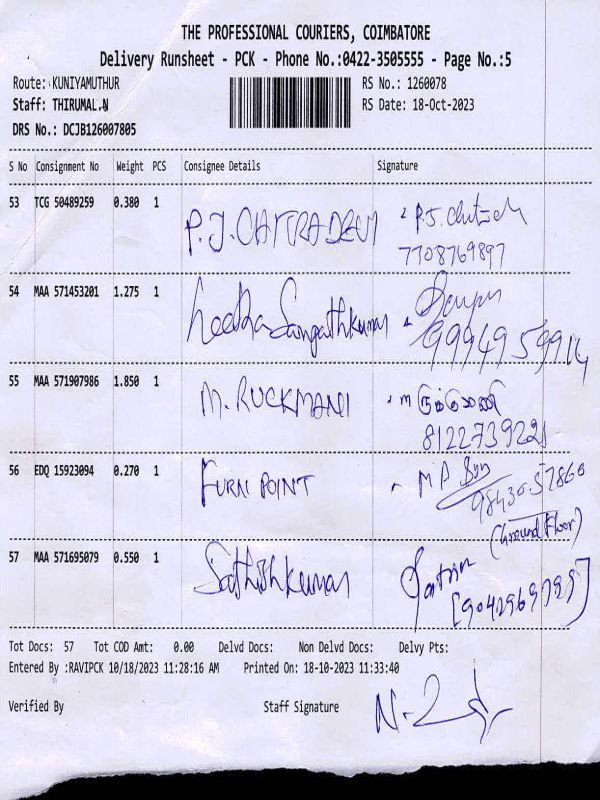 THE PROFESSIONAL COURIERS, COIMBATORE
Delivery Runsheet - PCK - Phone No.:0422-3505555 - Page No.:5
Route: KUNIYAMUTHUR RS No.: 1260078
Staff: THIRUMAL.N RS Date: 18-Oct-2023
DRS No.: DCJB126007805
S No Consignment No Weight PCS Consignee Details Signature
53 TCG 50489259 0.380 1 P.J. CHITRADEVI P.J.
7708769897
54 MAA 571453201 1.275 1
9994959914
55 MAA 571907986 1.850 1 M. RUCKMANI
8122739221
56 EDQ 15923094 0.270 1 FURN POINT M P
98430 57860
(Ground Floor)
57 MAA 571695079 0.550 1 Sathishkumar
Tot Docs: 57 Tot COD Amt: 0.00 Delvd Docs: Non Delvd Docs: Delvy Pts:
Entered By :RAVIPCK 10/18/2023 11:28:16 AM Printed On: 18-10-2023 11:33:40
Verified By Staff Signature